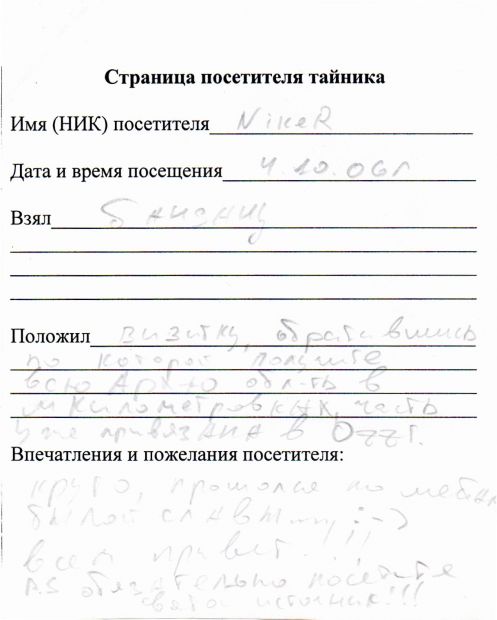 Страница посетителя тайника
Имя (НИК) посетителя NikeR
Дата и время посещения 4.10.06г
Взял
Положил визитку, обратившись
по которой получите
всю Арх-ю обл-ть в
километровках, часть
уже привязана в Ozzi.
Впечатления и пожелания посетителя:
круто, по
былой славы... ;-)
всем привет.!!!
P.S обязательно посетите
святой источник!!!